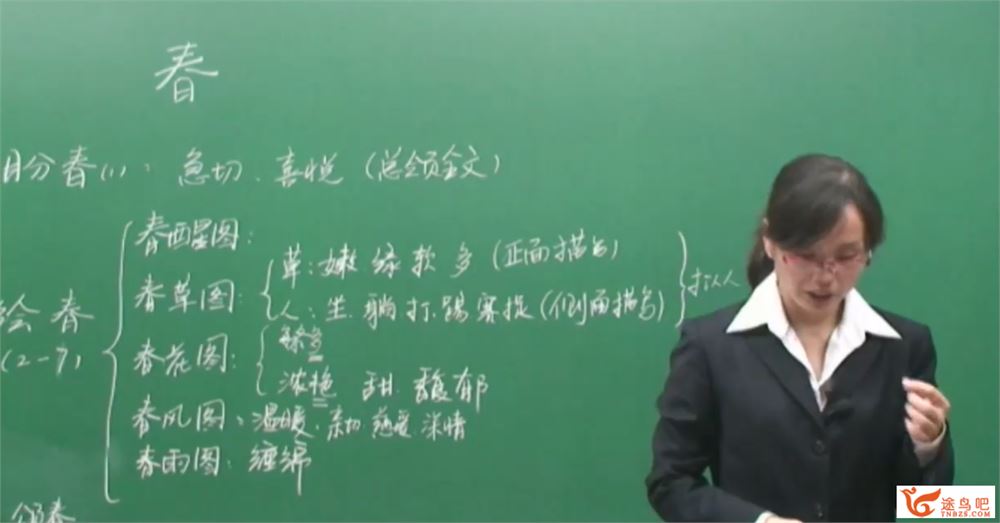 春
盼春(1)：急切、喜悦(总领全文)
绘春
(2-7)
春醒图：
春草图：
草：嫩 绿 软 多(正面描写)
人：坐 躺 打 踢 赛 捉(侧面描写)
拟人
春花图：
繁多
浓艳 甜 馥郁
春风图：温暖、亲切 慈爱 深情
春雨图：缠绵
颂春
途鸟吧
TNBZS.COM